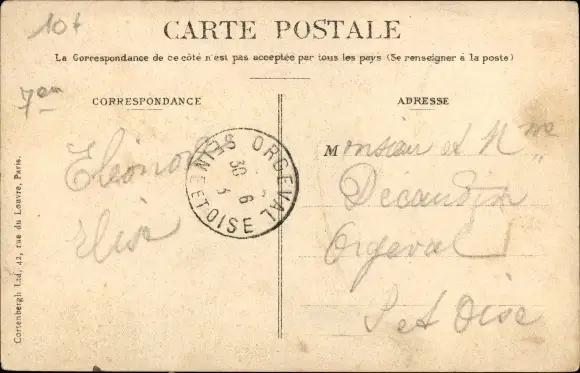 10f
CARTE POSTALE
La Correspondance de ce côté n'est pas acceptée par tous les pays (Se renseigner à la poste)
7em
CORRESPONDANCE
ADRESSE
Eléonore
Elise
ORGEVAL
SEINE ET OISE
30 6
Monsieur et Mme
Décaudin
Orgeval
S et Oise
Cortenbergh Ltd, 42, rue du Louvre, Paris.